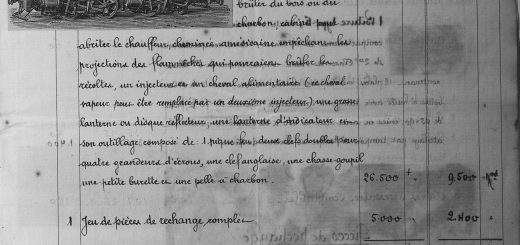 brûler du bois ou du
charbon, cabine pour
abriter le chauffeur, cheminée américaine empêchant les
projections des flammèches qui pourraient brûler les
récoltes, un injecteur et un cheval alimentaire (ce cheval
vapeur peut être remplacé par un deuxième injecteur) une grande
lanterne ou disque réflecteur, une lanterne d'indicateur et
son outillage composé de 1 pique feu, deux clefs doubles pour
quatre grandeurs d'écrous, une clef anglaise, une chasse goupil
une petite burette et une pelle à charbon. 26.500 9.500
1 Jeu de pièces de rechange, complet 5.000 2.400